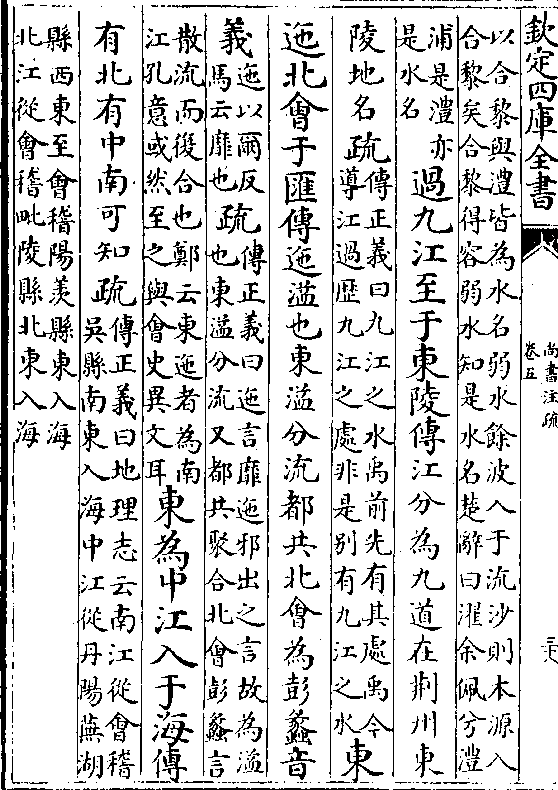 欽定四庫全書
尚書注疏
卷五
三六
以合黎與澧皆為水名弱水餘波入于流沙則木源入
合黎矣合黎得容弱水知是水名楚辭曰濯余佩兮澧
浦是澧亦
是水名
過九江至于東陵傳江分為九道在荆州東
陵地名疏
傳正義曰九江之水禹前先有其處禹今
導江過歴九江之處非是别有九江之水
東
迤北會于匯傳迤溢也東溢分流都共北會為彭蠡音
義
迤以爾反
馬云靡也
疏
傳正義曰迤言靡迤邪出之言故為溢
也東溢分流又都共聚合北會彭蠡言
散流而復合也鄭云東迤者為南
江孔意或然至之與會史異文耳
東為中江入于海傳
有北有中南可知疏
傳正義曰地理志云南江從會稽
吳縣南東入海中江從丹陽蕪湖
縣西東至會稽陽羡縣東入海
北江從會稽毗陵縣北東入海